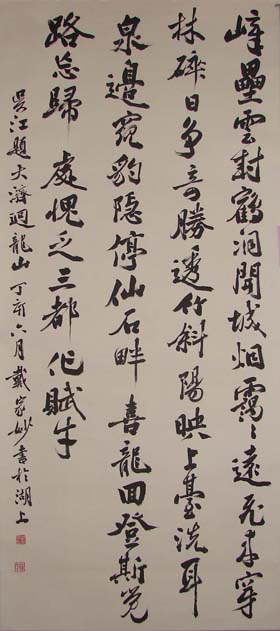 峰壘雲封鶴洞開城烟靄〻遠飛來穿
林碎日争奇勝透竹斜陽映上臺洗耳
泉邊窺豹隱停仙石畔喜龍回登斯覓
路忘歸處愧乏三都作賦才
吳江題大濟迴龍山丁亥六月戴家妙書於湖上